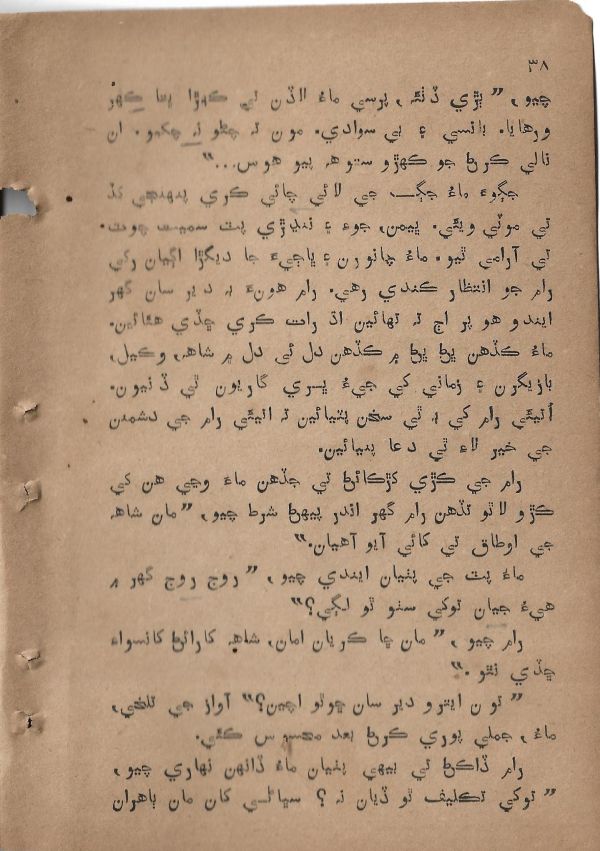 ٣٨
چيو، ”ٻڙي ڏٺئہ، پرسي ماءُ لاڏن تي ڪهڙا پئا کهر
ورهايا. باسي ۽ بي سوادي. مون تہ چکو نہ چکيو. ان
نالي ڪرڻ جو ڪهڙو ستوهہ پيو هوس...“
جڳوءَ ماءُ جڳہ جي لائي چائي ڪري پنهنجي کڏ
تي موٽي ويئي. پيمن، جوءِ ۽ ننڍڙي پٽ سميت چوٽ
تي آرامي ٿيو. ماءُ چانورن ۽ ڀاڄيءَ جا ديڳڙا اڳيان رکي
رام جو انتظار ڪندي رهي. رام هونءَ بہ دير سان گهر
ايندو هو پر اڄ تہ تهائين اڌ رات ڪري ڇڏي هئائين.
ماءُ ڪڏهن ڀڻ ڀڻ ۾ ڪڏهن دل ئي دل ۾ شاهہ، وڪيل،
بازيگرن ۽ زماني کي جيءُ ڀري گاريون ٿي ڏنيون.
اُتيئي رام کي بہ ٿي سخن پنيائين تہ اتيئي رام جي دشمنن
جي خير لاءِ ٿي دعا پنيائين.
رام جي ڪڙي کڙڪائڻ تي جڏهن ماءُ وڃي هن کي
ڪڙو لاٿو تڏهن رام گهر اندر پيهڻ شرط چيو، ”مان شاهہ
جي اوطاق تي کائي آيو آهيان.“
ماءُ پٽ جي پٺيان ايندي چيو، ”روج روج گهر ۾
هيءُ جيان توکي سٺو ٿو لڳي؟“
رام چيو، ”مان ڇا ڪريان امان، شاهہ کارائڻ کانسواءِ
ڇڏي نٿو.“
”تون ايترو دير سان ڇوٿو اچين؟“ آواز جي تلخي،
ماءُ، جملي پوري ڪرڻ بعد محسوس ڪئي.
رام ڏاڪڻ تي بيهي پٺيان ماءُ ڏانهن نهاري چيو،
”توکي تڪليف ٿو ڏيان نہ؟ سڀاڻي کان مان ٻاهران